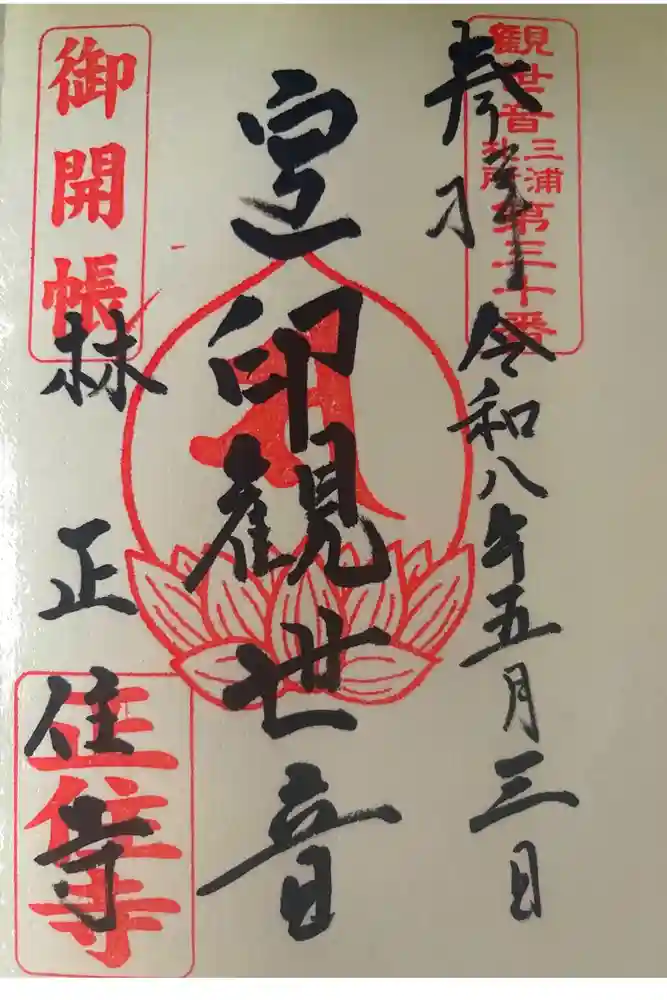 奉拝 令和八年五月三日
観世音
三浦
札所
第三十番
印観世音
御開帳
林 正住寺
正住寺